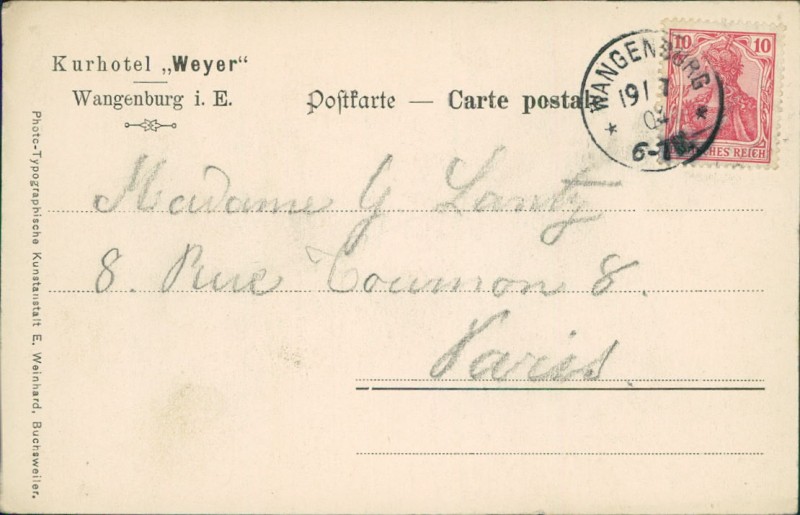 Kurhotel „Weyer“
Wangenburg i. E.
Postkarte — Carte postale
WANGENBURG
19
6-7
10 10
DEUTSCHES REICH
Madame G. Lantz
8. Rue Tournon 8.
Paris.
Photo-Typographische Kunstanstalt E. Weinhard, Buchsweiler.